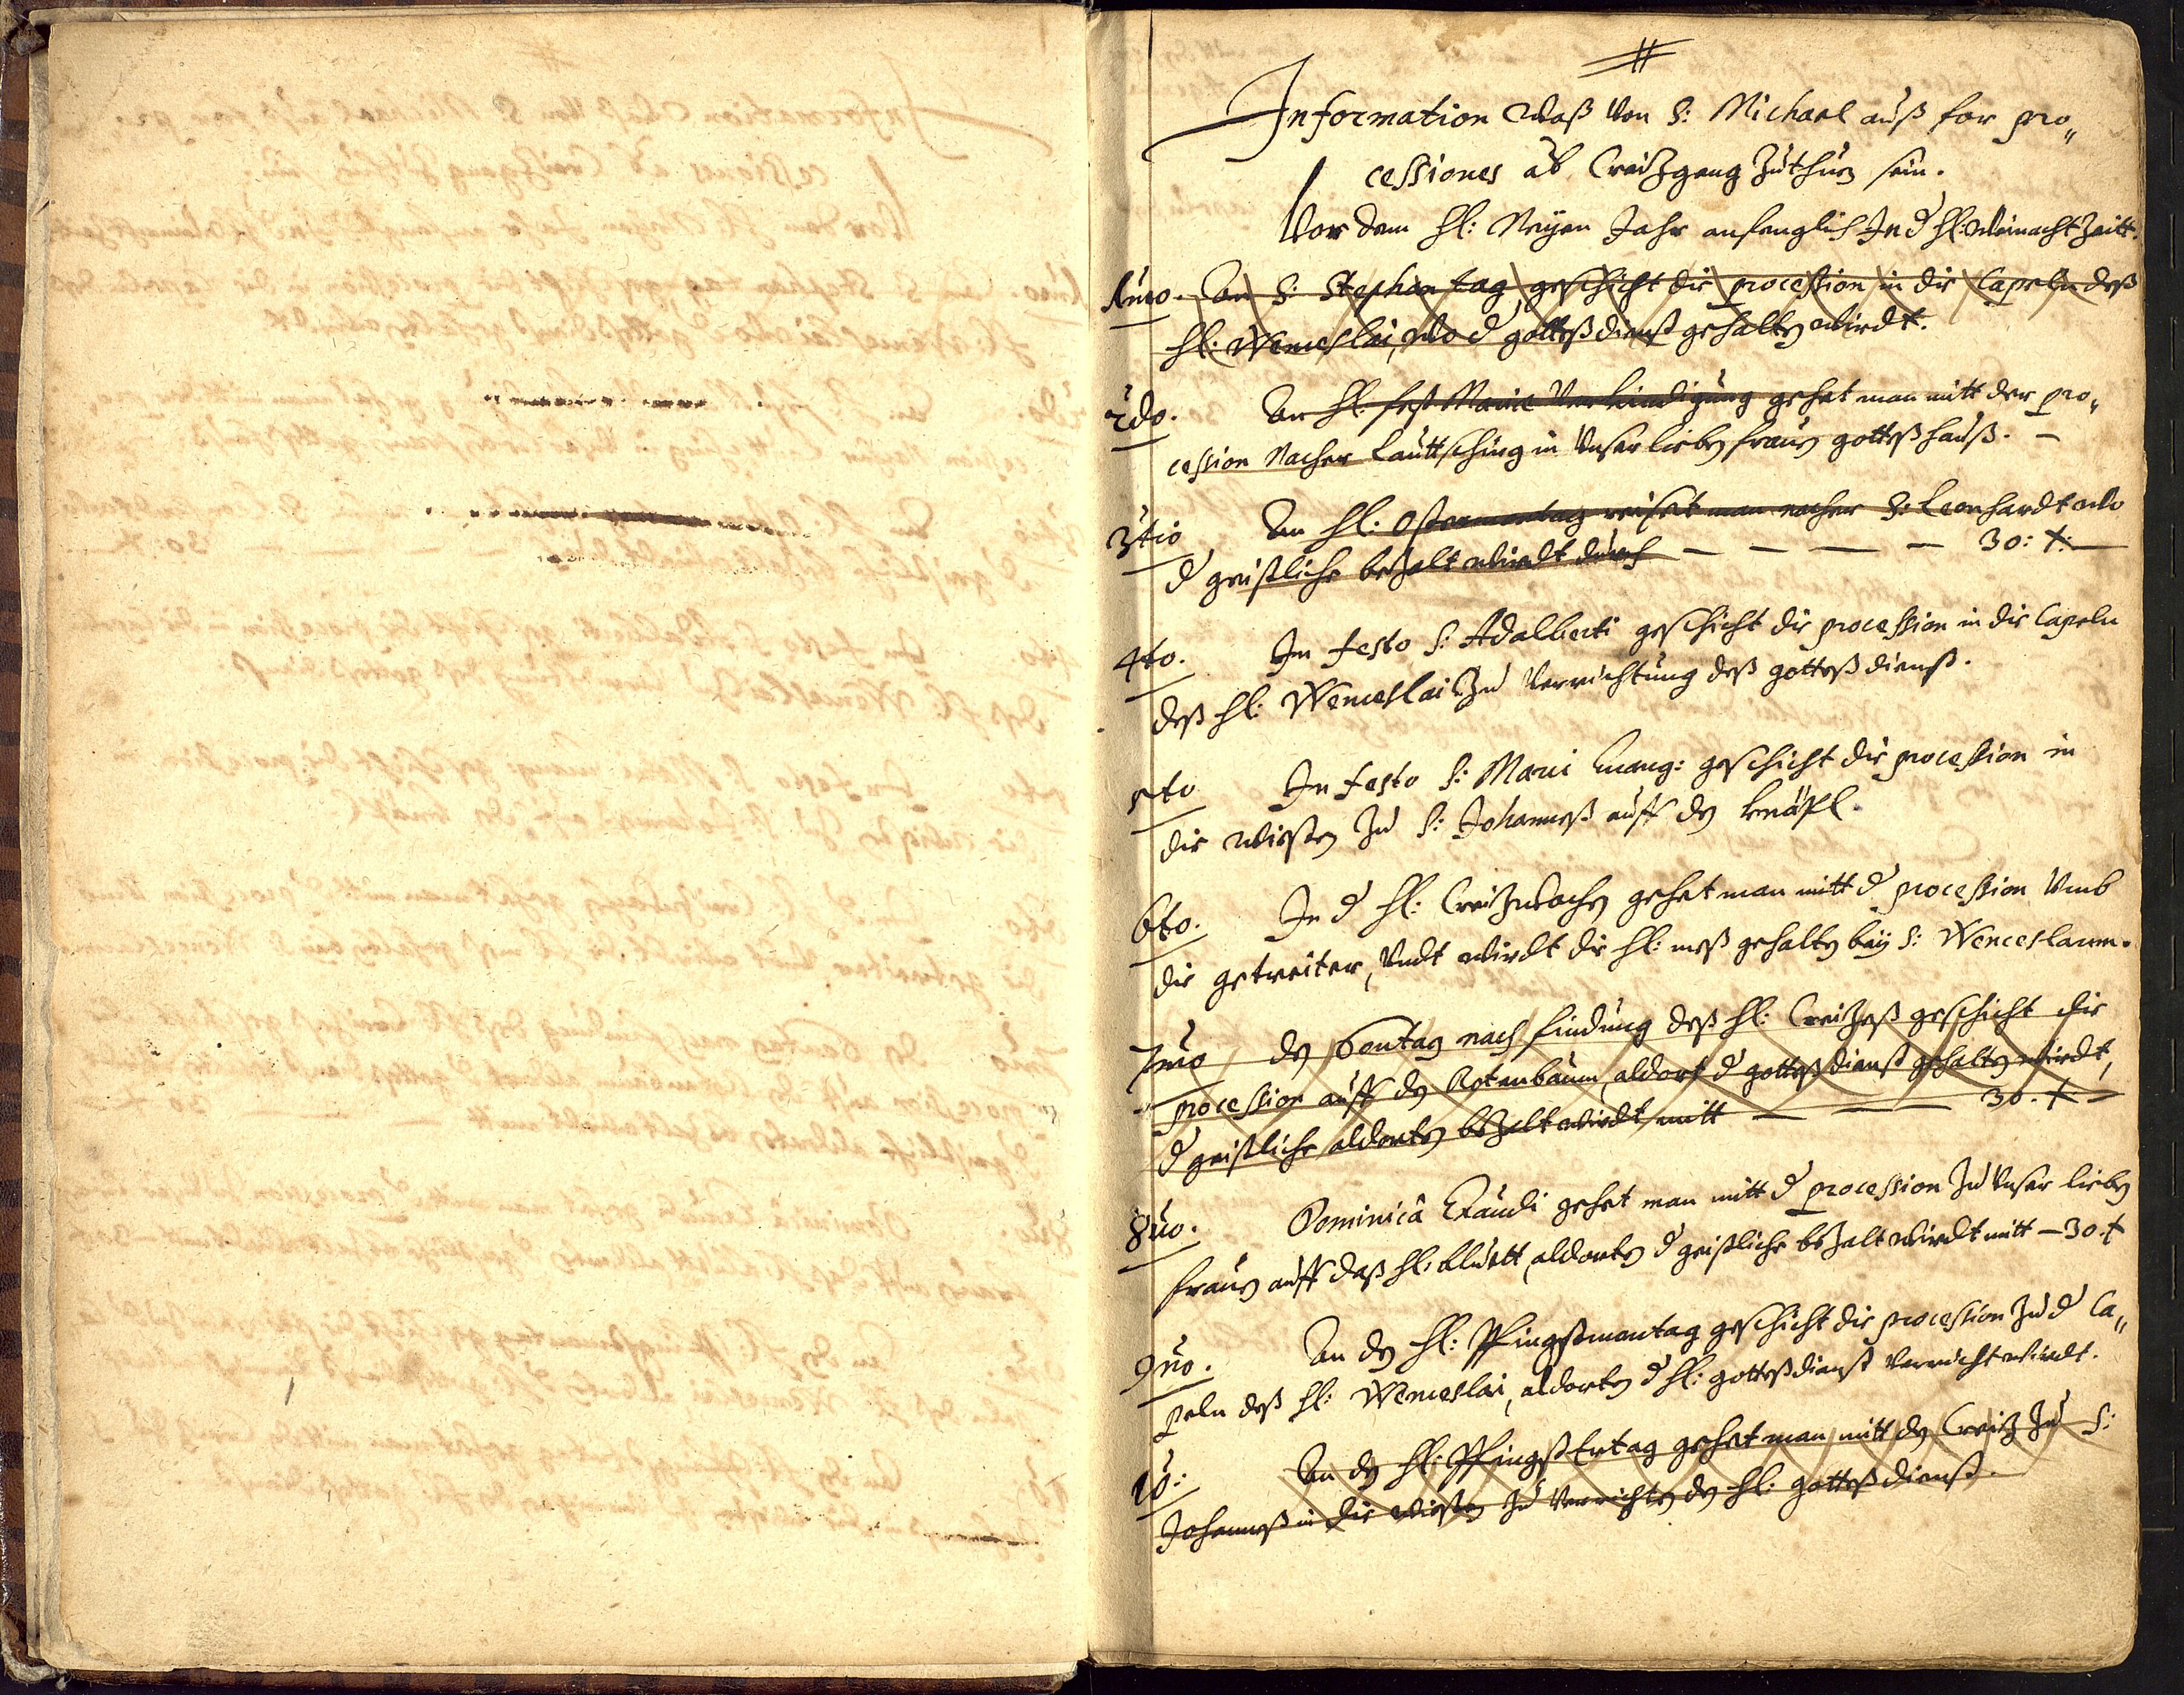 Information Waß Von S: Michael auß for pro„
cessiones ab Creitzgang zuthun sein.
Vor dem hl: Neyen Jahr anfenglich In d hl: Weinacht Zeitt.
1mo. An S: Stephan tag geschicht die procession in die Capeln deß
hl: Wenceslai, wo d gotteßdienst gehalten wirdt.
2do. An hl. fest Mariae Verkindigung gehet man mitt der pro„
cession Nacher Lauttschüng in Unser lieben frauen gotteßhauß. –
3tio An hl: Ostermontag reiset man nacher S: Leonhardt wo
d geistliche bezalt wirdt durch — — — — 30: x: —
4to. In festo S: Adalberti geschicht die procession in die Capeln
deß hl: Wenceslai Zu Verrichtung deß gotteßdienst.
5to In festo S: Marci Evang: geschicht die procession in
die Wießen Zu S: Johanneß auff den
6to. In d hl: Creitzwochen gehet man mitt d procession Umb
die getreiter, Undt wirdt die hl: meß gehalten beÿ S: Wenceslaum.
7mo den Sontag nach findung deß hl: Creitzeß geschicht die
procession auff den Rotenbaum, aldort d gotteßdienst gehalten wirdt,
d geistliche aldorten bezalt wirdt mitt — — — 30. x –
8vo. Dominicâ Exaudi gehet man mitt d procession Zu Unser lieben
frauen auff daß hl: bluett, aldorten d geistliche bezalt wirdt mitt — 30. x
9no. An den hl: Pfingstmontag geschicht die procession Zu d Ca„
peln deß hl: Wenceslai, aldorten d hl: gotteßdienst Verricht wirdt.
10: An den hl: Pfingst Ertag gehet man mitt den Creitz Zu S:
Johanneß in die Wießen Zu Verrichten den hl: gotteßdienst.